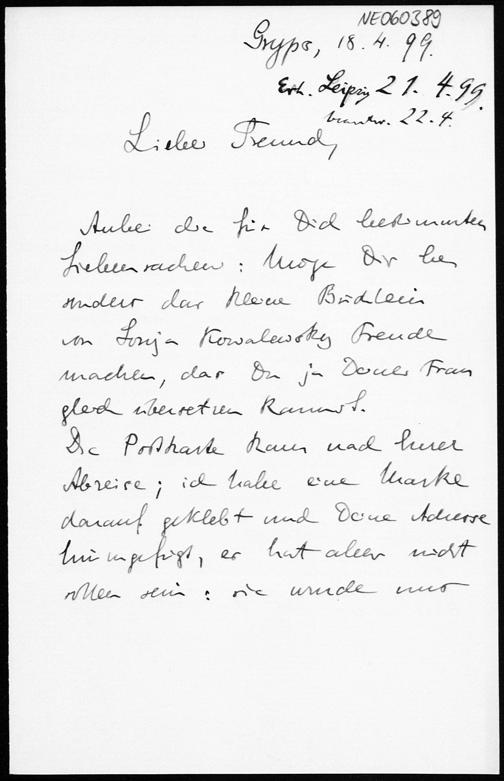 NE060389
Gryps, 18.4.99.
Erh. Leipzig 21.4.99.
beantw. 22.4.
Lieber Freund,
Anbei die für Dich bestimmten
Siebensachen: Möge Dir be
sonders das kleine Büchlein
von Sonja Kowalewsky Freude
machen, das Du ja Deiner Frau
gleich übersetzen kannst.
Die Postkarte kam nach Eurer
Abreise; ich habe eine Marke
darauf geklebt und Deine Adresse
hinzugefügt, es hat aber nicht
sollen sein: sie wurde mir